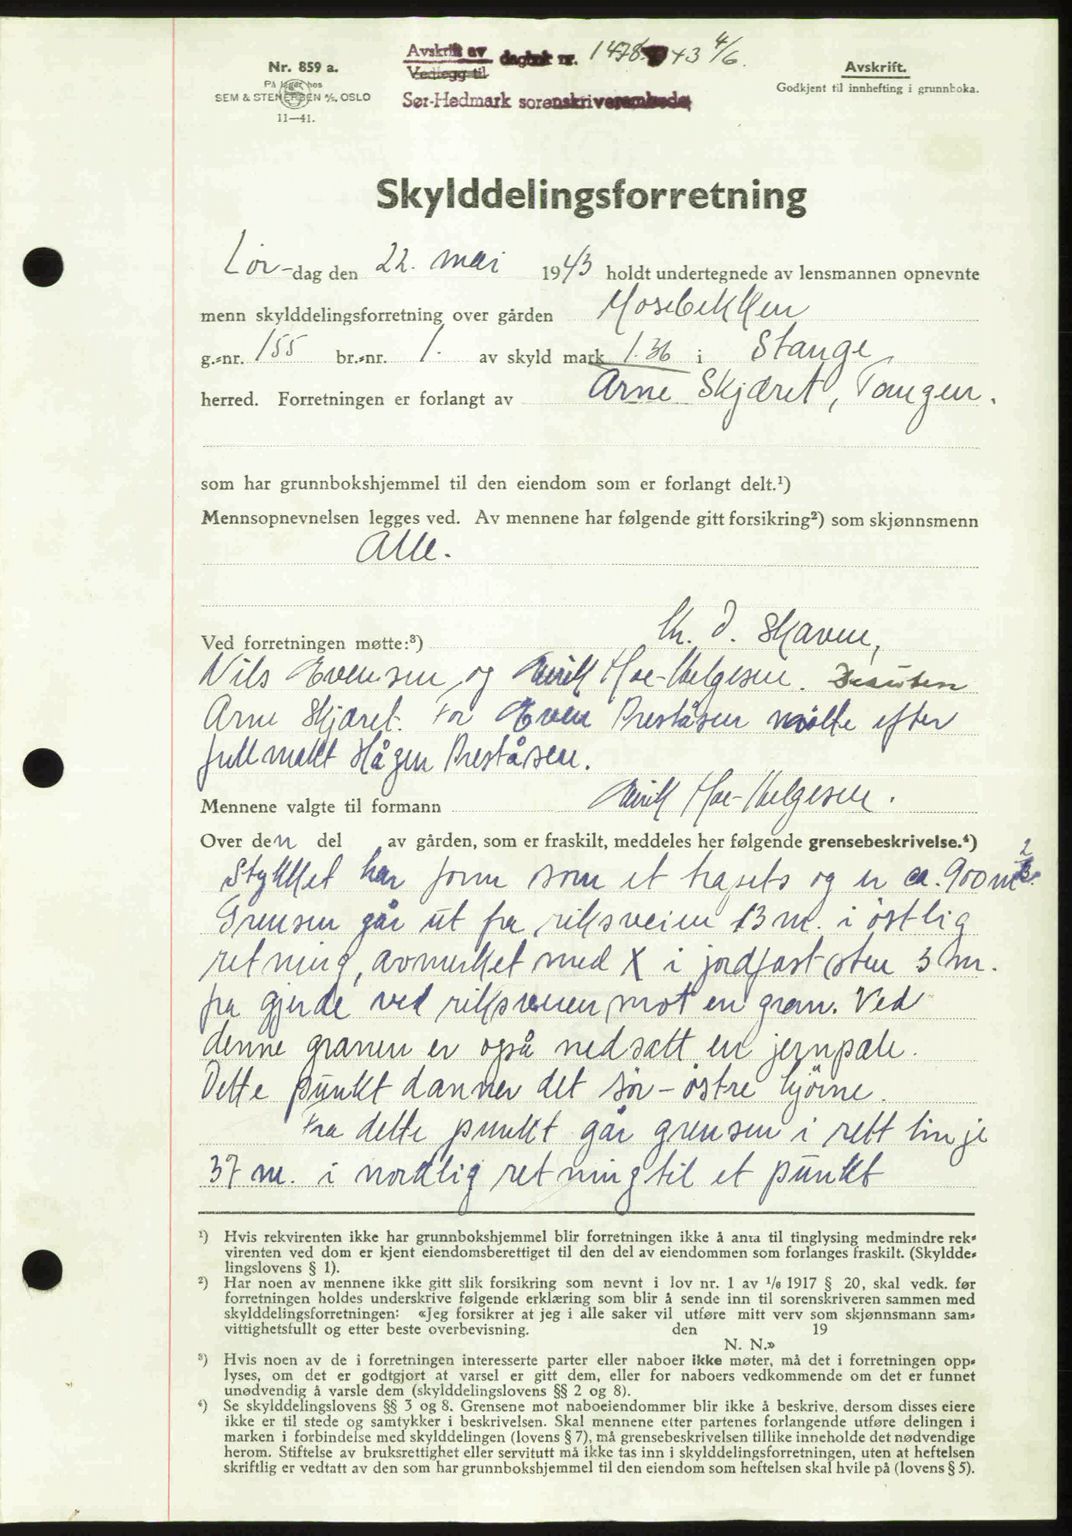 Nr. 859 a.
På lager hos
SEM & STENERSEN A/S, OSLO
11—41.
Avskrift av dagbok nr. 1478 43 4/6.
Vedlegg til
Sør-Hedmark sorenskriverembede
Avskrift.
Godkjent til innhefting i grunnboka.
Skylddelingsforretning
Lør-dag den 22. mai 1943 holdt undertegnede av lensmannen opnevnte
menn skylddelingsforretning over gården Mosebekken
g.-nr. 155 br.-nr. 1. av skyld mark 1.36 i Stange
herred. Forretningen er forlangt av Arne Skjæret, Tangen.
som har grunnbokshjemmel til den eiendom som er forlangt delt.¹)
Mennsopnevnelsen legges ved. Av mennene har følgende gitt forsikring²) som skjønnsmenn
Alle.
Ved forretningen møtte:³) Chr. J. Skaven,
Nils Evensen og Hoe-Helgesen.
Arne Skjæret. For Even Preståsen møtte efter
fullmakt Hågen Preståsen.
Mennene valgte til formann Hoe-Helgesen.
Over den del av gården, som er fraskilt, meddeles her følgende grensebeskrivelse.⁴)
Stykket har form som et trapets og er ca. 900 m²
Grensen går ut fra riksveien 13 m. i östlig
retning, avmerket med X i jordfast sten 3 m.
fra gjerde ved riksveien mot en gran. Ved
denne granen er også nedsatt en jernpæle.
Dette punkt danner det sör-östre hjörne.
Fra dette punkt går grensen i rett linje
37 m. i nordlig retning til et punkt
¹) Hvis rekvirenten ikke har grunnbokshjemmel blir forretningen ikke å anta til tinglysing medmindre rek-
virenten ved dom er kjent eiendomsberettiget til den del av eiendommen som forlanges fraskilt. (Skyldde-
lingslovens § 1).
²) Har noen av mennene ikke gitt slik forsikring som nevnt i lov nr. 1 av 1/6 1917 § 20, skal vedk. før
forretningen holdes underskrive følgende erklæring som blir å sende inn til sorenskriveren sammen med
skylddelingsforretningen: «Jeg forsikrer at jeg i alle saker vil utføre mitt verv som skjønnsmann sam-
vittighetsfullt og etter beste overbevisning. den 19
N. N.»
³) Hvis noen av de i forretningen interesserte parter eller naboer ikke møter, må det i forretningen opp-
lyses, om det er godtgjort at varsel er gitt dem, eller for naboers vedkommende om det er funnet
unødvendig å varsle dem (skylddelingslovens §§ 2 og 8).
⁴) Se skylddelingslovens §§ 3 og 8. Grensene mot naboeiendommer blir ikke å beskrive, dersom disses eiere
ikke er til stede og samtykker i beskrivelsen. Skal mennene etter partenes forlangende utføre delingen i
marken i forbindelse med skylddelingen (lovens § 7), må grensebeskrivelsen tillike inneholde det nødvendige
herom. Stiftelse av bruksrettighet eller servitutt må ikke tas inn i skylddelingsforretningen, uten at heftelsen
skriftlig er vedtatt av den som har grunnbokshjemmel til den eiendom som heftelsen skal hvile på (lovens § 5).